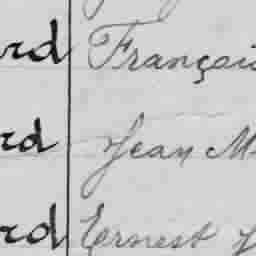 rd Françoi
rd Jean M
rd Ernest